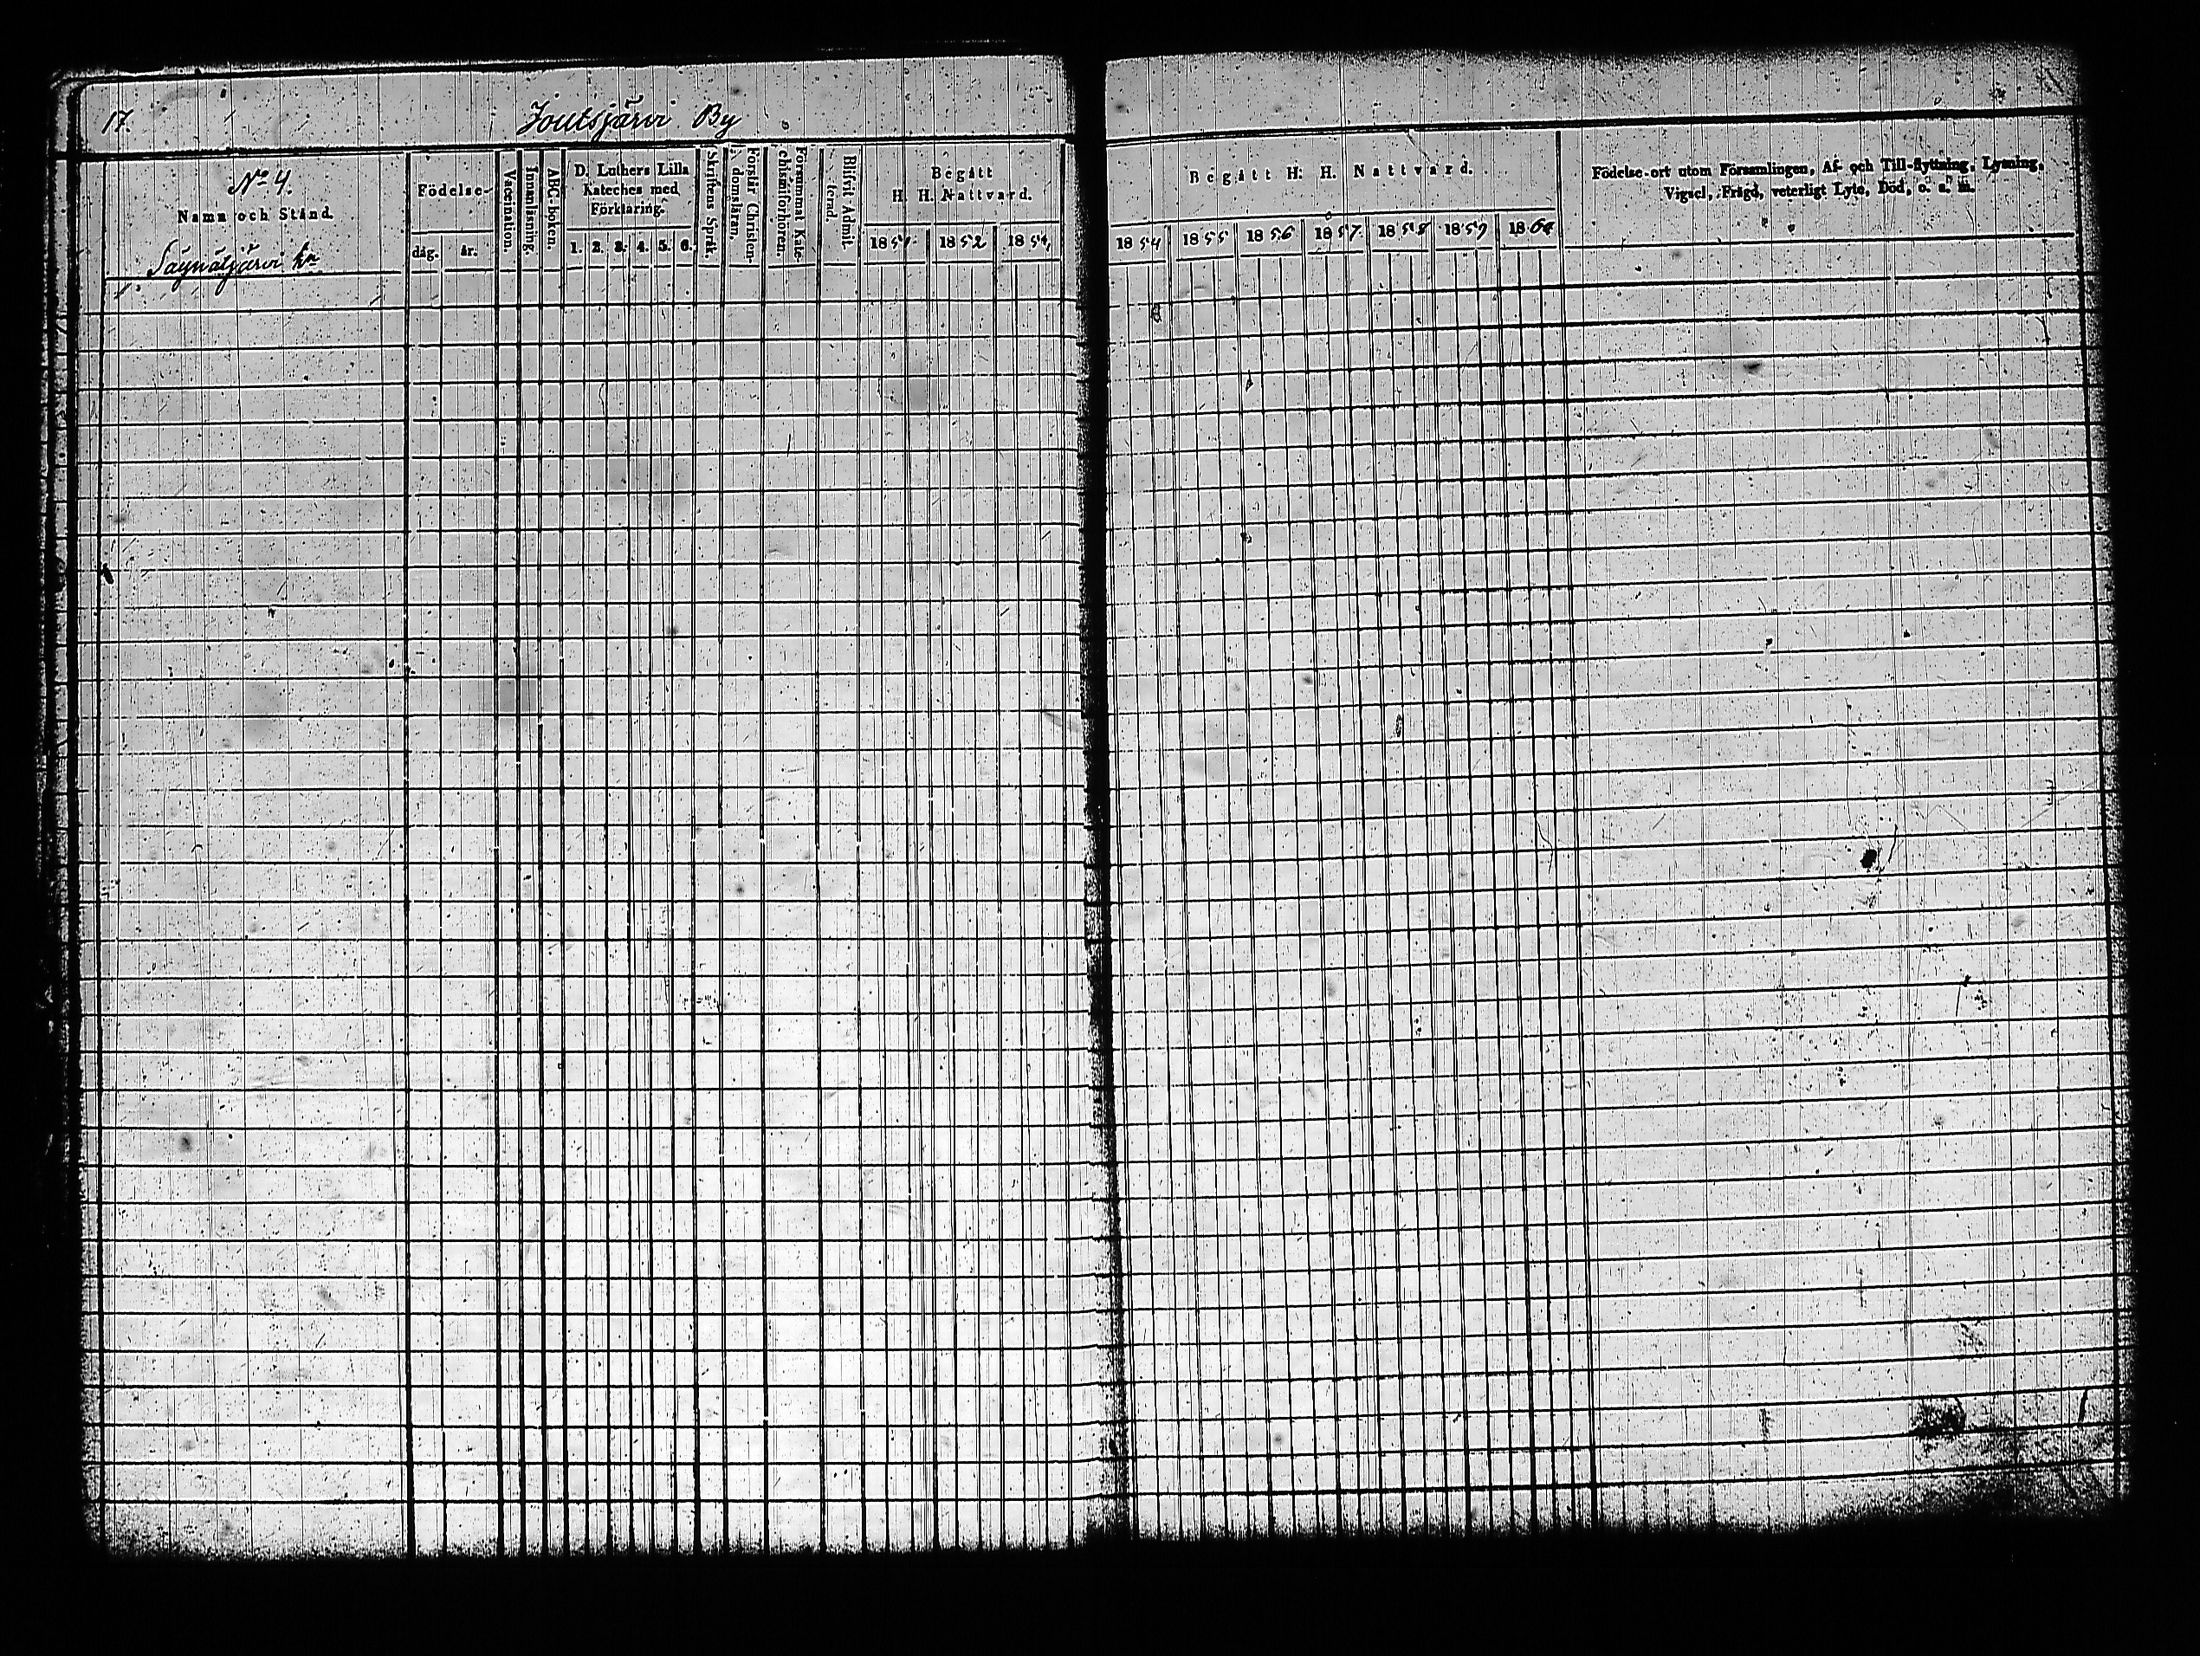 17. Joutsjärvi By
No 4.
Namn och Stånd.
Säynätjärvi hn
Födelse-
dag. år.
Vaccination.
Innanläsning.
ABC-boken.
D. Luthers Lilla
Kateches med
Förklaring.
1. 2. 3. 4. 5. 6.
Skriftens Språk.
Förstår Christen-
domsläran.
Försummat Kate-
chismiförhören.
Blifvit Admit-
terad.
Begått
H. H. Nattvard.
1851 1852 185
Begått H. H. Nattvard.
1854 1855 1856 1857 1858 1859 1860
Födelse-ort utom Församlingen, Af- och Till-flyttning, Lysning,
Vigsel, Frägd, veterligt Lyte, Död, o. s. m.